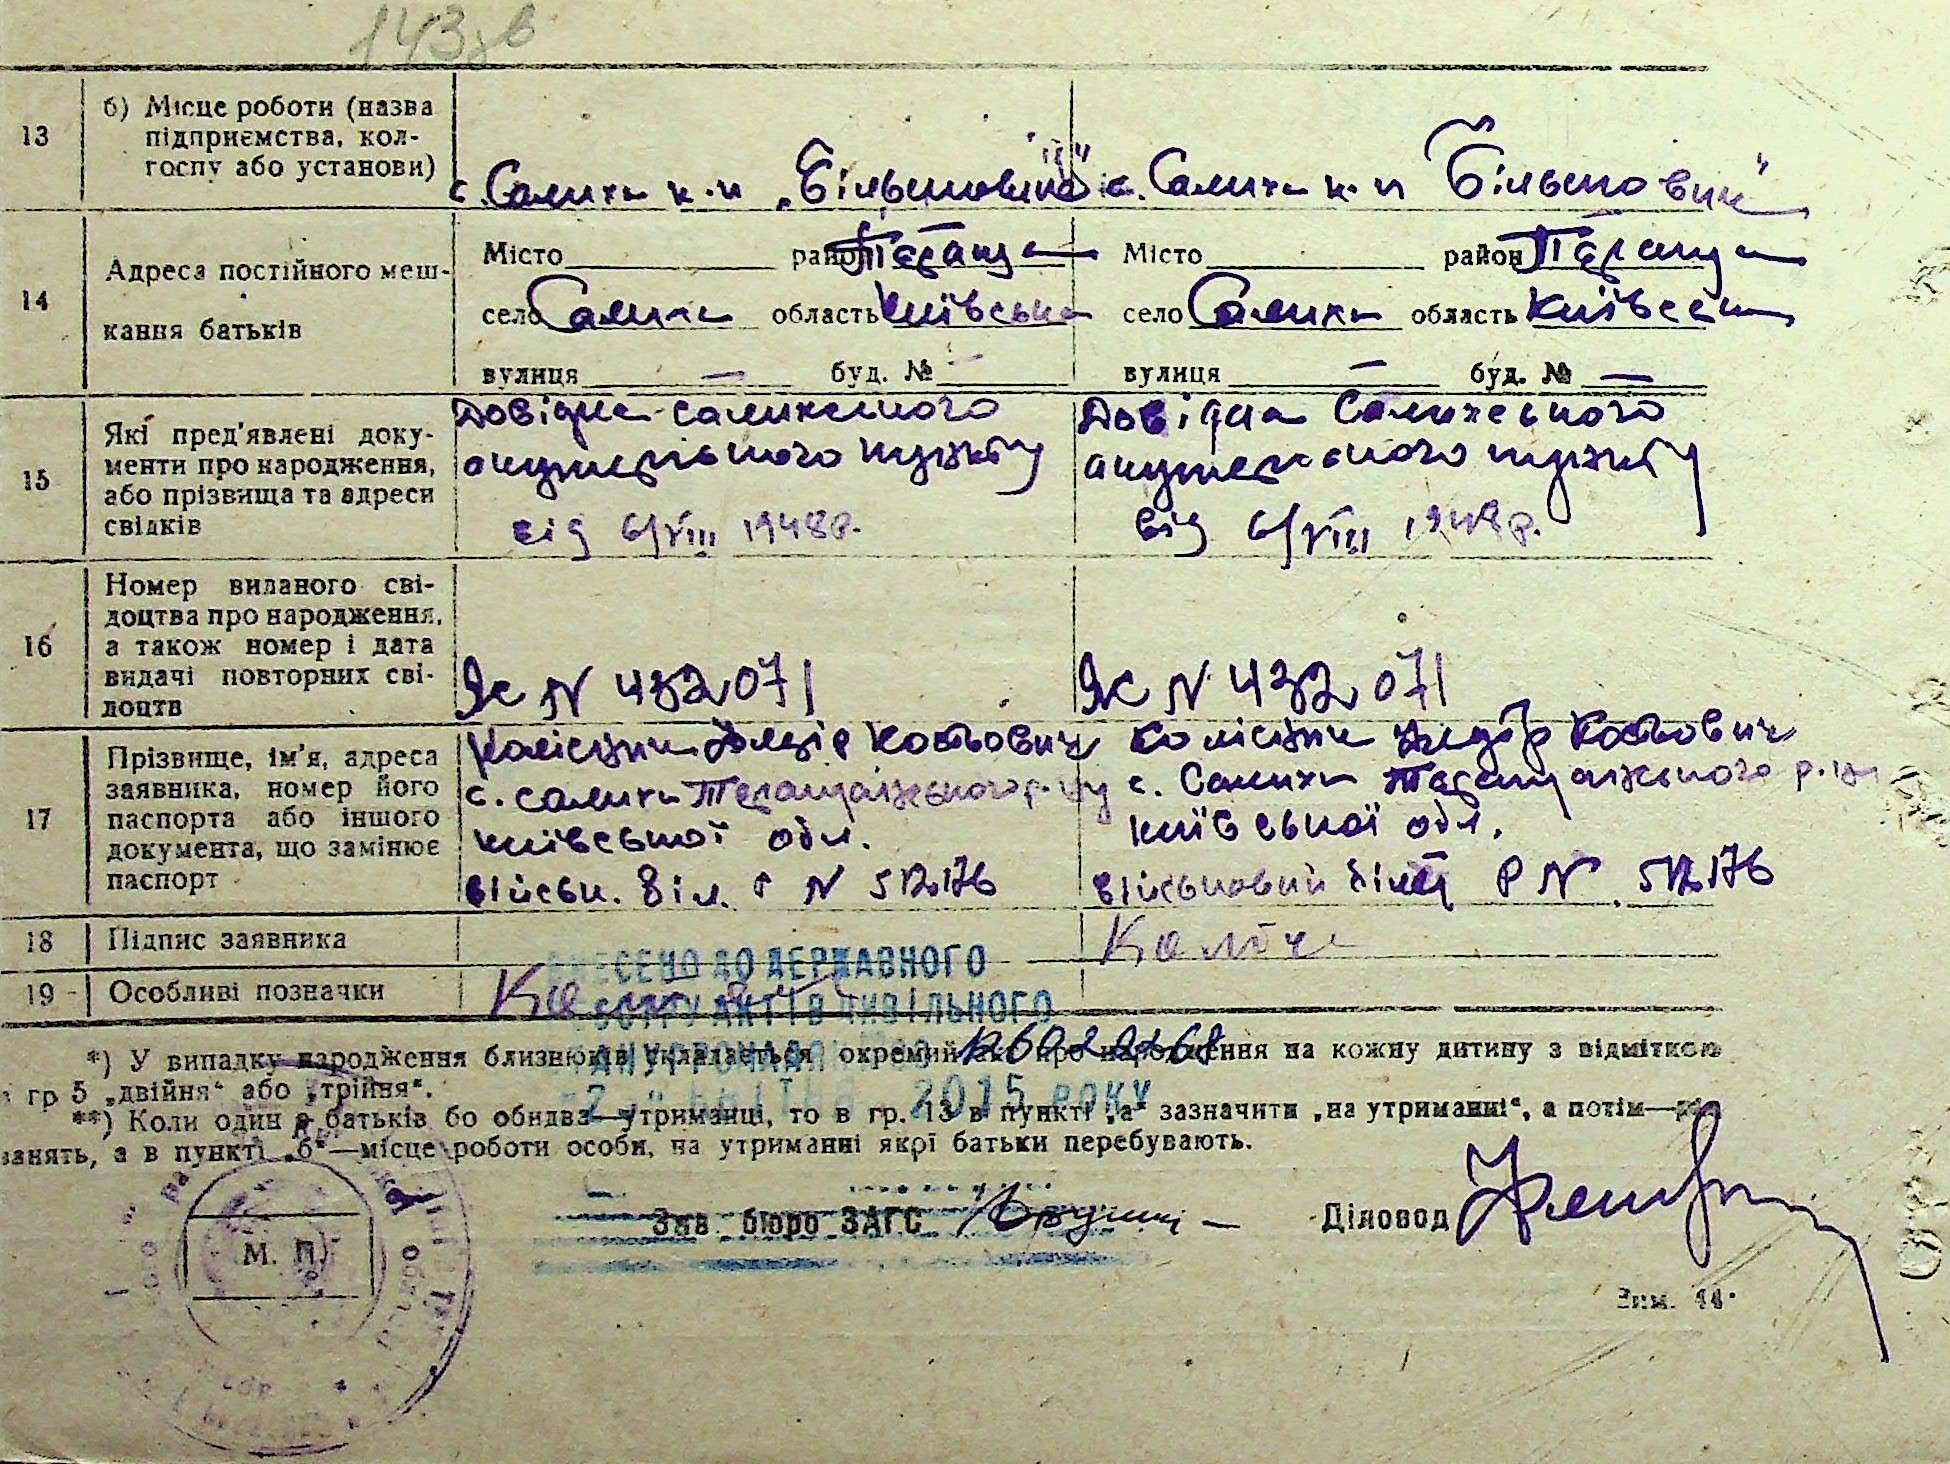 143зв
13
б) Місце роботи (назва
підприємства, кол-
госпу або установи)
с. Салиха к-п „Більшовик" с. Салиха к-п „Більшовик"
14
Адреса постійного меш-
кання батьків
Місто район Тараща Місто район Тараща
село Салиха область Київська село Салиха область Київська
вулиця — буд. № — вулиця — буд. № —
15
Які пред'явлені доку-
менти про народження,
або прізвища та адреси
свідків
Довідка салихського
акушерського пункту
від 6/VIII 1948р.
Довідка Салихського
акушерського пункту
від 6/VIII 1948р.
16
Номер виданого сві-
доцтва про народження,
а також номер і дата
видачі повторних сві-
доцтв
ЯС N 432071
ЯС N 432071
17
Прізвище, ім'я, адреса
заявника, номер його
паспорта або іншого
документа, що замінює
паспорт
с. Салиха Таращанського р-ну
Київської обл.
військ. біл. Р N 512176
с. Салиха Таращанського р-ну
Київської обл.
військовий білет Р N 512176
18 Підпис заявника
19 Особливі позначки
ВНЕСЕНО ДО ДЕРЖАВНОГО
РЕЄСТРУ АКТІВ ЦИВІЛЬНОГО
СТАНУ ГРОМАДЯН
2 КВІТНЯ 2015 РОКУ
*) У випадку народження близнюків складається окремий акт про народження на кожну дитину з відміткою
в гр 5 „двійня" або „трійня".
**) Коли один з батьків бо обидва—утриманці, то в гр. 13 в пункті „а" зазначити „на утриманні", а потім—рід
занять, а в пункті „б"—місце роботи особи, на утриманні якої батьки перебувають.
М. П.
Зав. бюро ЗАГС
Діловод
Зам. 44